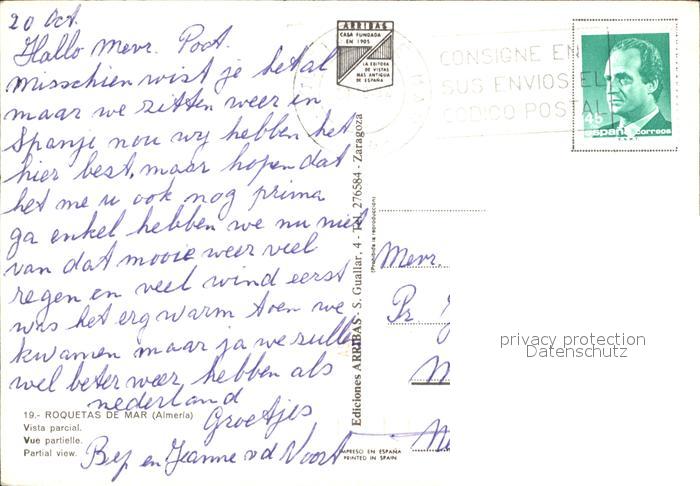 20 Oct.
Hallo Mevr. Poot.
Misschien wist je het al
maar we zitten weer in
Spanje nou wy hebben het
hier best, maar hopen dat
het me u ook nog prima
ga enkel hebben we nu niet
van dat mooie weer veel
regen en veel wind eerst
was het erg warm toen we
kwamen maar ja we zullen
wel beter weer hebben als
nederland
Groetjes
Bep en Jeanne v d Voort
19.- ROQUETAS DE MAR (Almería)
Vista parcial.
Vue partielle.
Partial view.
ARRIBAS
CASA FUNDADA
EN 1905
LA EDITORA
DE VISTAS
MAS ANTIGUA
DE ESPAÑA
Ediciones ARRIBAS - S. Guallar, 4 - Tel. 276584 - Zaragoza
(Prohibida la reproducción)
IMPRESO EN ESPAÑA
PRINTED IN SPAIN
CONSIGNE EN
SUS ENVIOS EL
CODIGO POSTAL
45
españa correos
Mevr.
Pr
privacy protection
Datenschutz